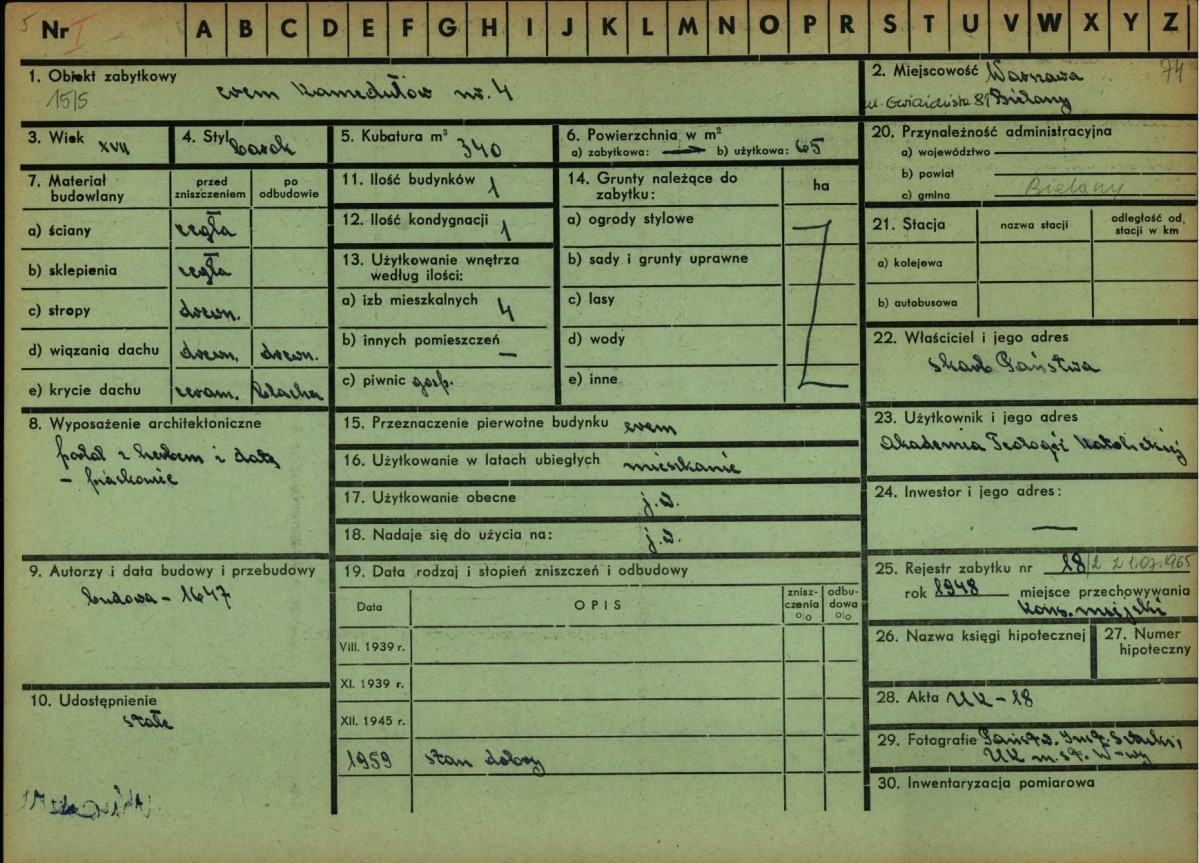 5 Nr I A B C D E F G H I J K L M N O P R S T U V W X Y Z
1. Obiekt zabytkowy
15/5
erem Kamedułów nr. 4
2. Miejscowość Warszawa 74
ul. Gwiaździsta 81 Bielany
3. Wiek XVII
4. Styl barok
5. Kubatura m³ 340
6. Powierzchnia w m²
a) zabytkowa: — b) użytkowa: 65
20. Przynależność administracyjna
a) województwo
b) powiat
c) gmina Bielany
7. Materiał budowlany
przed zniszczeniem
po odbudowie
a) ściany cegła
b) sklepienia cegła
c) stropy drewn.
d) wiązania dachu drewn. drewn.
e) krycie dachu ceram. blacha
11. Ilość budynków 1
12. Ilość kondygnacji 1
13. Użytkowanie wnętrza
według ilości:
a) izb mieszkalnych 4
b) innych pomieszczeń —
c) piwnic gosp.
14. Grunty należące do
zabytku:
ha
a) ogrody stylowe
b) sady i grunty uprawne
c) lasy
d) wody
e) inne
21. Stacja
nazwa stacji
odległość od stacji w km
a) kolejowa
b) autobusowa
22. Właściciel i jego adres
skarb Państwa
8. Wyposażenie architektoniczne
portal z herbem i datą
– piaskowiec
15. Przeznaczenie pierwotne budynku erem
16. Użytkowanie w latach ubiegłych mieszkanie
17. Użytkowanie obecne j.w.
18. Nadaje się do użycia na: j.w.
23. Użytkownik i jego adres
Akademia Teologii Katolickiej
24. Inwestor i jego adres:
—
9. Autorzy i data budowy i przebudowy
budowa – 1647
10. Udostępnienie
stałe
19. Data rodzaj i stopień zniszczeń i odbudowy
Data
OPIS
znisz-
czenia
%
odbu-
dowa
%
VIII. 1939 r.
XI. 1939 r.
XII. 1945 r.
1959 stan dobry
25. Rejestr zabytku nr 18/2 z 1.07.1965
rok 1948 miejsce przechowywania
Kons. miejski
26. Nazwa księgi hipotecznej
27. Numer
hipoteczny
28. Akta UK – 18
29. Fotografie Państw. Inst. Sztuki,
UK m. st. W-wy
30. Inwentaryzacja pomiarowa